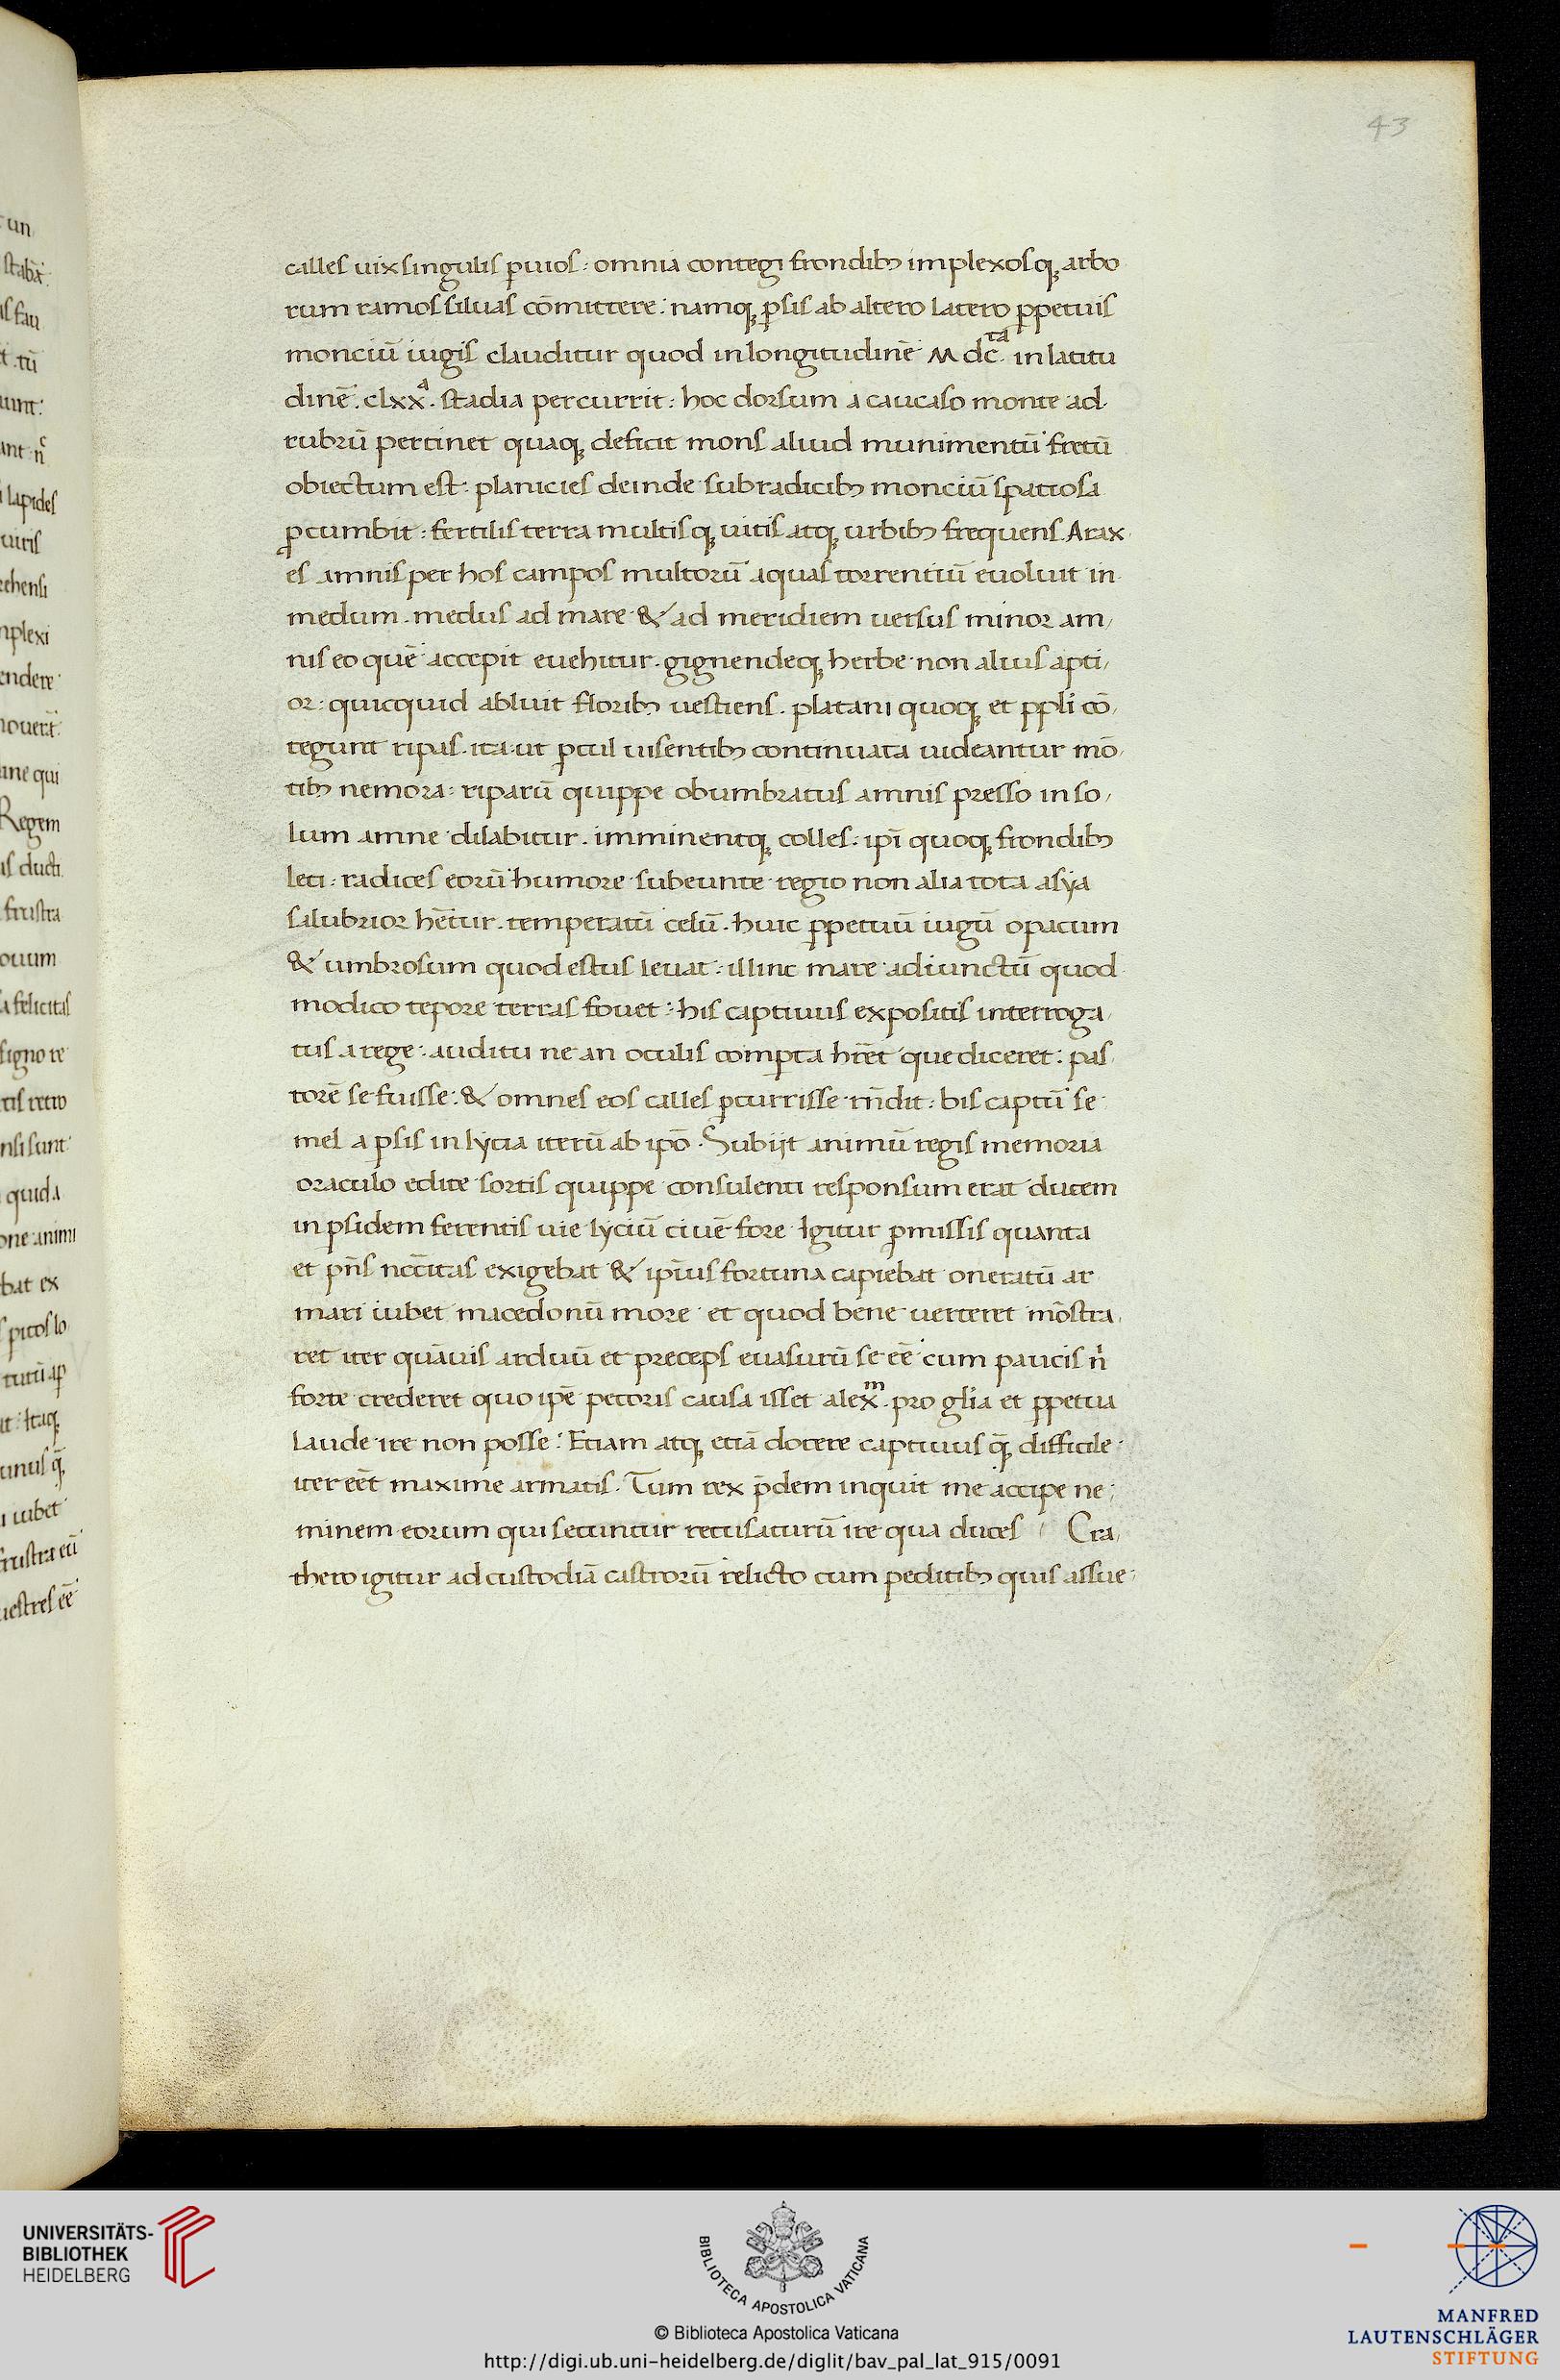 43
calles uix singulis ꝑuios : omnia contegi frondibꝫ implexosqꝫ arbo
rum ramos siluas cōmittere : namqꝫ ꝑsis ab altero latero ꝑpetuis
monciū iugis clauditur quod in longitudinē M dc.ta in latitu
dinē . clxx.a stadia percurrit : hoc dorsum a caucaso monte ad
rubrū pertinet quaqꝫ deficit mons aliud munimentū fretū
obiectum est : planicies deinde sub radicibꝫ monciū spatiosa
ꝓcumbit : fertilis terra multisqꝫ uicis atqꝫ urbibꝫ frequens . Arax
es amnis per hos campos multorū aquas torrentiū euoluit in
medum . medus ad mare & ad meridiem uersus minor am,
nis eo quē accepit euehitur . gignendeqꝫ herbe non alius apti,
or : quicquid abluit floribꝫ uestiens . platani quoqꝫ et ppli cō,
tegunt ripas . ita ut ꝓcul uisentibꝫ continuata uideantur mō
tibꝫ nemora : riparū quippe obumbratus amnis presso in so,
lum amne dilabitur . imminentqꝫ colles . ipī quoqꝫ frondibꝫ
leti : radices eorū humore subeunte regio non alia tota asÿa
salubrior hētur . temperatū celū . huic ꝑpetuū iugū opacum
& umbrosum quod estus leuat : illinc mare adiunctū quod
modico tepore terras fouet : his captiuus expositis interroga,
tus a rege : auditu ne an oculis comꝑta hrēt que diceret : pas
torē se fuisse : & omnes eos calles ꝑcurrisse rn̄dit : bis captū se
mel a ꝑsis in lycia iterū ab ipō . Subijt animū regis memoria
oraculo edite sortis quippe consulenti responsum erat ducem
in ꝑsidem ferentis uie lyciū ciuē fore Igitur ꝓmissis quanta
et pn̄s nccītas exigebat & ipīus fortuna capiebat oneratū ar
mari iubet macedonū more et quod bene uerteret mōstra,
ret iter quāuis arduū et preceps euasurū se eē cum paucis n̄
forte crederet quo ipē pecoris causa isset alex.m pro glīa et ꝑpetua
laude ire non posse : Etiam atqꝫ etiā docere captiuus q̄ꝫ difficile
iter eēt maxime armatis . Tum rex p̄dem inquit me accipe ne,
minem eorum qui secuntur recusaturū ire qua duces Cra,
thero igitur ad custodiā castrorū relicto cum peditibꝫ quis assue
UNIVERSITÄTS-
BIBLIOTHEK
HEIDELBERG
BIBLIOTECA APOSTOLICA VATICANA
© Biblioteca Apostolica Vaticana
http://digi.ub.uni-heidelberg.de/diglit/bav_pal_lat_915/0091
MANFRED
LAUTENSCHLÄGER
STIFTUNG